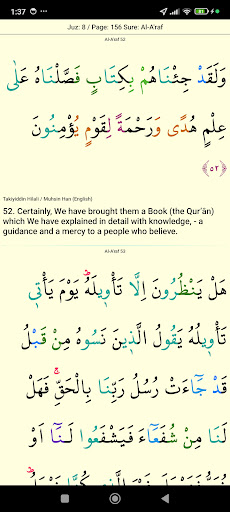 1:37
Juz: 8 / Page: 156 Sure: Al-A'raf
Al-A'raf 52
وَلَقَدْ جِئْنَاهُمْ بِكِتَابٍ فَصَّلْنَاهُ عَلٰى
عِلْمٍ هُدًى وَرَحْمَةً لِقَوْمٍ يُؤْمِنُونَ
﴿٥٢﴾
Takiyiddin Hilali / Muhsin Han (English)
52. Certainly, We have brought them a Book (the Qur'ân)
which We have explained in detail with knowledge, - a
guidance and a mercy to a people who believe.
Al-A'raf 52
هَلْ يَنْظُرُونَ اِلَّا تَأْوٖيلَهُ يَوْمَ يَأْتٖي
تَأْوٖيلُهُ يَقُولُ الَّذٖينَ نَسُوهُ مِنْ قَبْلُ
قَدْ جَاۤءَتْ رُسُلُ رَبِّنَا بِالْحَقِّ فَهَلْ
لَنَا مِنْ شُفَعَاۤءَ فَيَشْفَعُوا لَنَا اَوْ